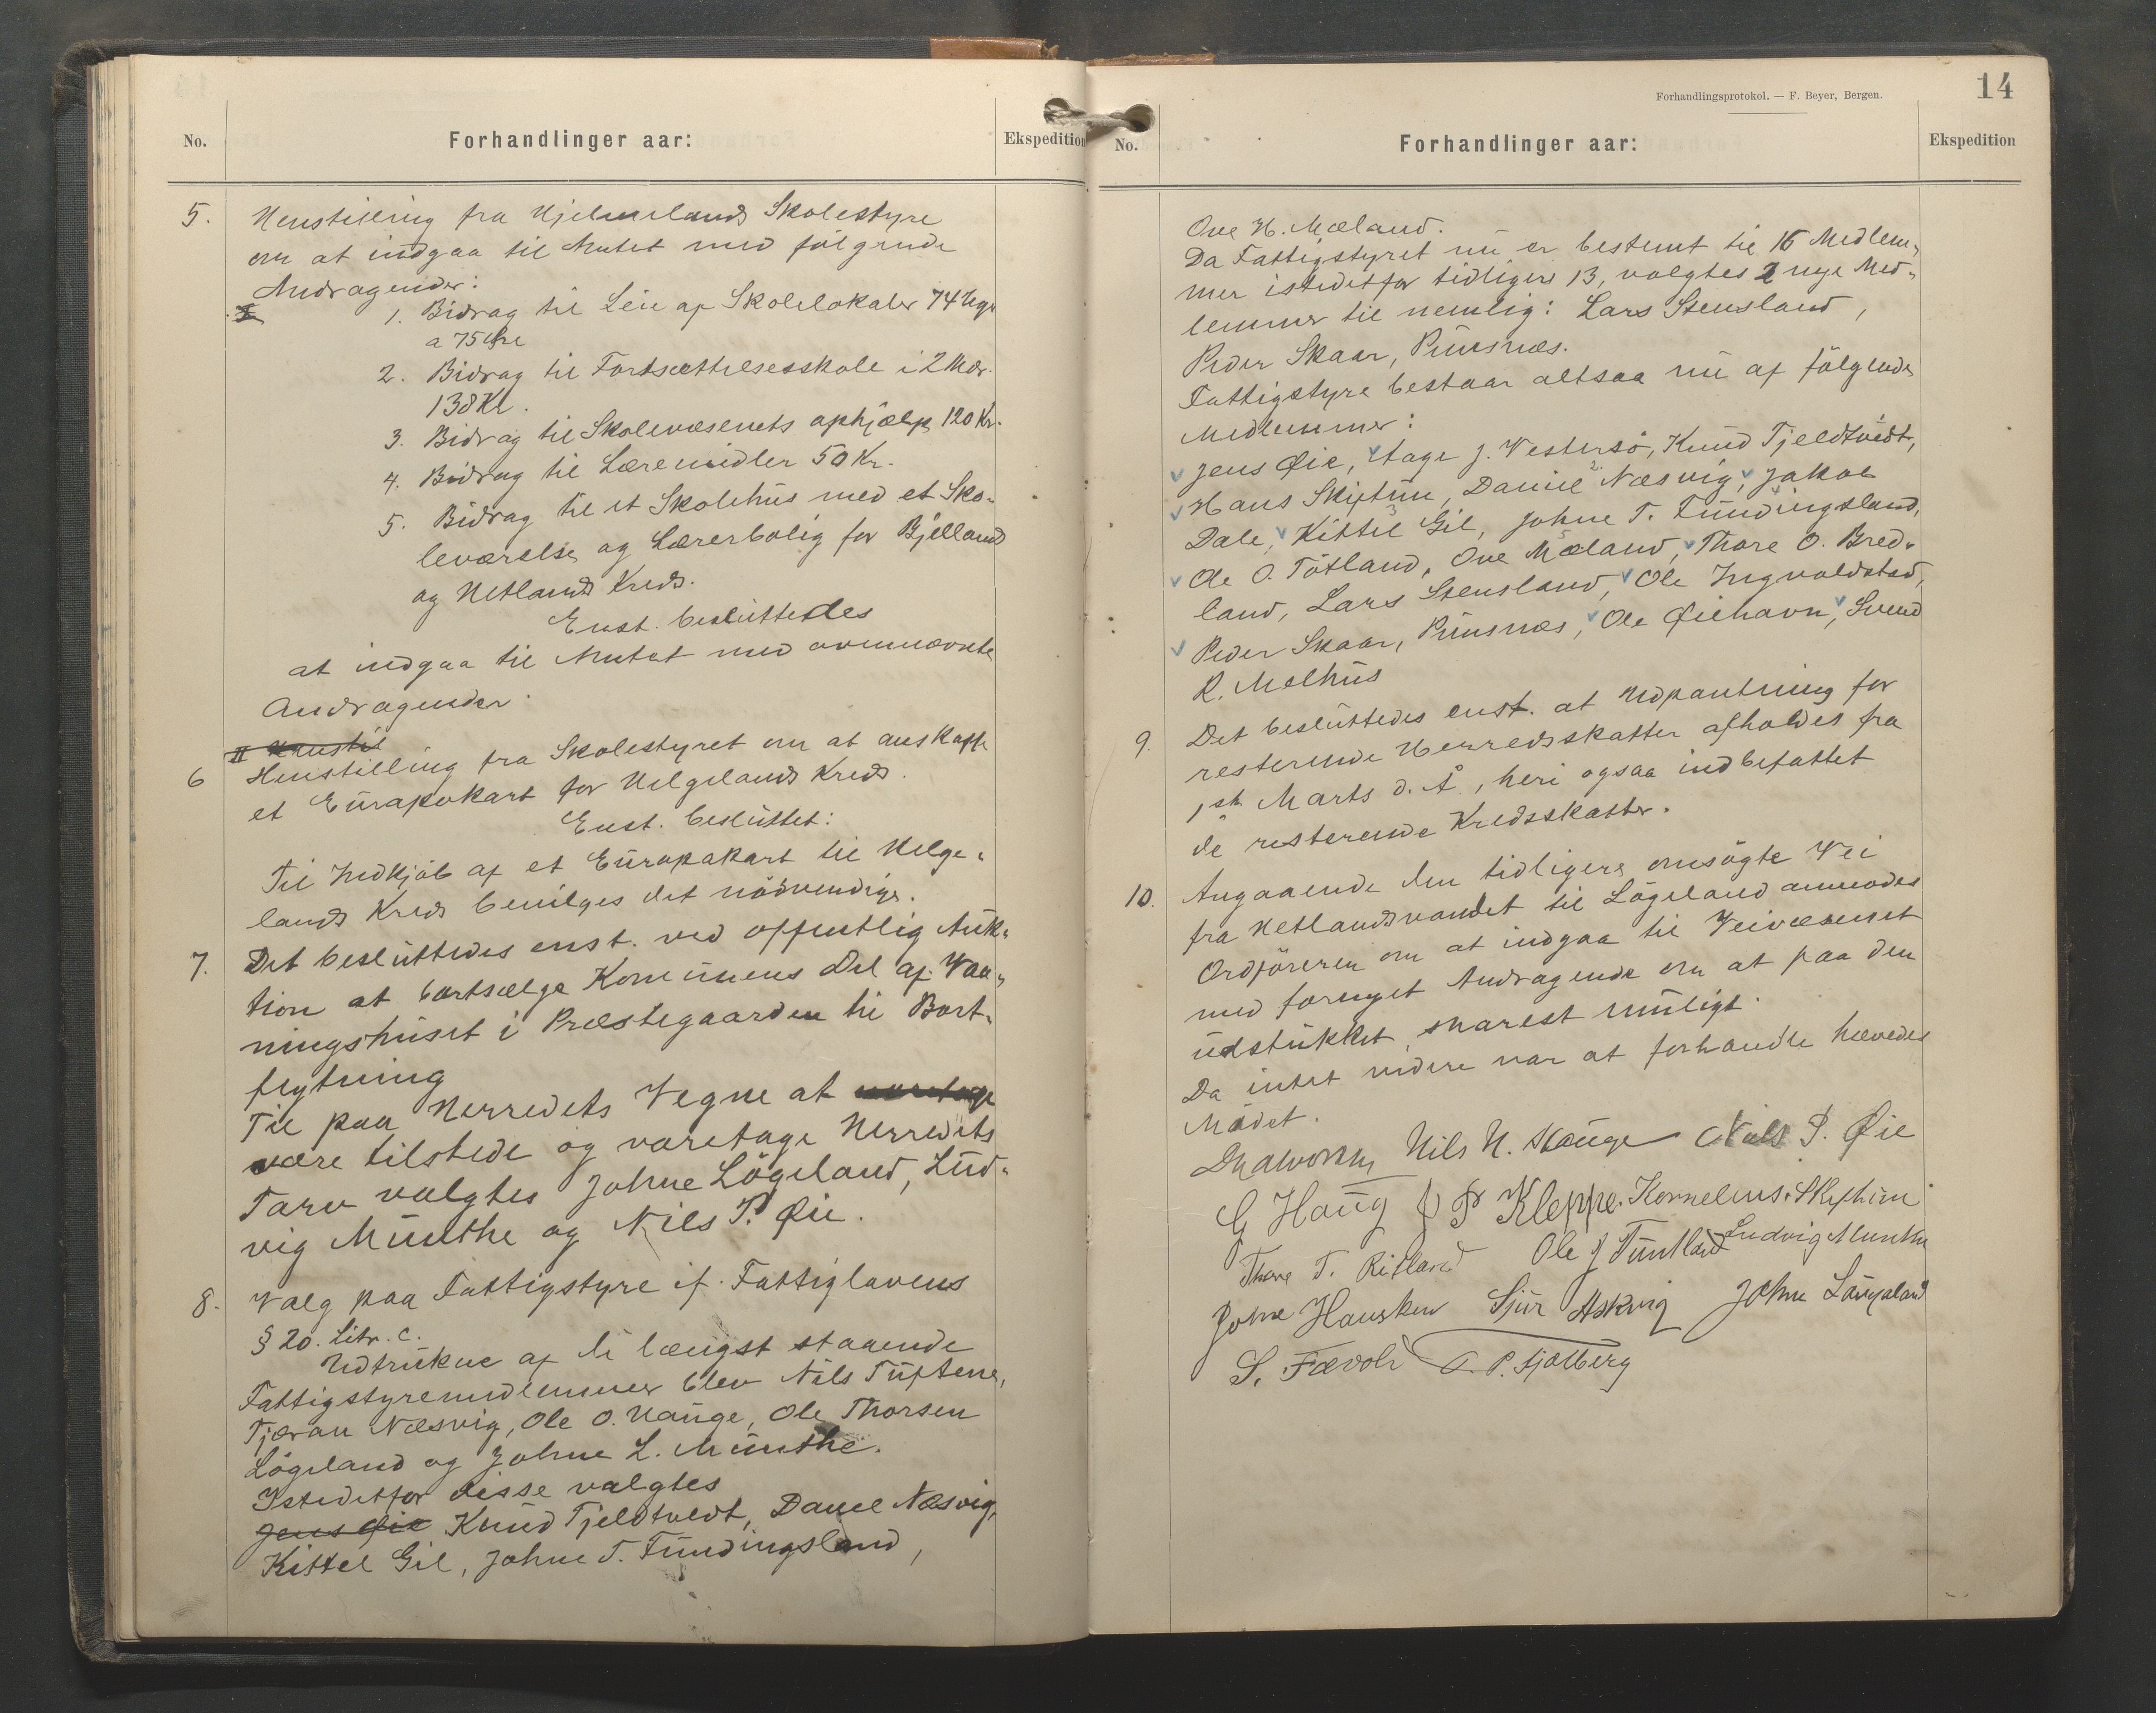 No.
Forhandlinger aar:
Ekspedition
5. Henstilling fra Hjelmelands Skolestyre
om at indgaa til Amtet med følgende
Andragender:
1. Bidrag til Leie af Skolelokaler 74 Uger
a 75 Øre
2. Bidrag til Fortsættelsesskole i 2 Mdr.
138 Kr.
3. Bidrag til Skolevæsenets ophjælp 120 Kr.
4. Bidrag til Læremidler 50 Kr.
5. Bidrag til et Skolehus med et Sko-
leværelse og Lærerbolig for Bjelland
og Hetlands Kreds.
Enst. besluttedes
at indgaa til Amtet med ovennævnte
Andragender.
II Henstil
6 Henstilling fra Skolestyret om at anskaffe
et Europakart for Helgelands Kreds.
Enst. besluttet:
Til Indkjøb af et Europakart til Helge-
lands Kreds bevilges det nødvendige.
7. Det besluttedes enst. ved offentlig Auk-
tion at bortsælge Kommunens Del af Vaa-
ningshuset i Præstegaarden til Bort-
flytning
Til paa Herredets Vegne at varetage
være tilstede og varetage Herredets
Tarv valgtes Johne Løgeland, Lud-
vig Munthe og Nils P. Øie.
8. Valg paa Fattigstyre if. Fattiglovens
§ 20. Litr. C.
Udtrukne af de længst staaende
Fattigstyremedlemmer blev Nils Tuftene,
Tjeran Næsvig, Ole O. Hauge, Ole Thorsen
Løgeland og Johne L. Munthe.
Istedetfor disse valgtes
Jens Øie Knud Tjeldtvedt, Daniel Næsvig,
Kittel Gil, Johne T. Fundingsland,
Forhandlingsprotokol. — F. Beyer, Bergen.
14
No.
Forhandlinger aar:
Ekspedition
Ove H. Mæland.
Da Fattigstyret nu er bestemt til 15 Medlem-
mer istedetfor tidligere 13, valgtes 2 nye Med-
lemmer til nemlig: Lars Stensland,
Peder Skaar, Puusnæs.
Fattigstyre bestaar altsaa nu af følgende
Medlemmer:
Jens Øie, Aage J. Vestersø, Knud Tjeldtvedt,
Hans Skiftun, Daniel Næsvig, Jakob
Dale, Kittel Gil, Johne T. Fundingsland,
Ole O. Tøtland, Ove Mæland, Thore O. Bred-
land, Lars Stensland, Ole Ingvaldstad,
Peder Skaar, Puusnæs, Ole Øiehavn, Svend
R. Molhus
9. Det besluttedes enst. at Udpantning for
resterende Herredsskatter afholdes fra
1ste Marts d. A., heri ogsaa indbefattet
de resterende Kredsskatter.
10. Angaaende den tidligere omsøgte Vei
fra Hetlandsvandet til Løgeland anmodes
Ordføreren om at indgaa til Veivæsenet
med fornyet Andragende om at paa den
udstukket, snarest muligt.
Da intet videre var at forhandle hævedes
Mødet.
Nils H. Hauge Niels P. Øie
G Haug J P Kleppe. Kornelius Skiftun
Thore T. Ritland Ole J Tuntland Ludvig Munthe
Johne Hausken Sjur Askvig Johne Løugaland
S. Fævold O. P. Fjelberg